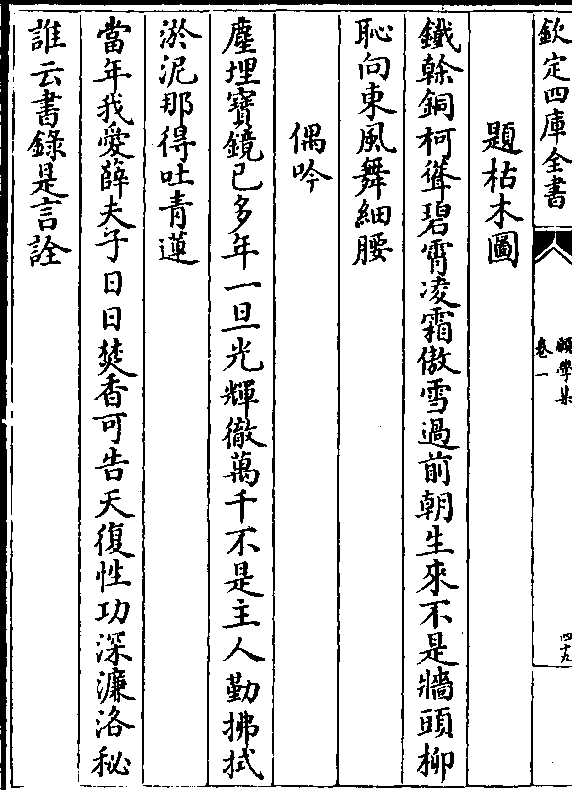 欽定四庫全書
願學集
卷一
四十九
題枯木圖
鐵榦銅柯聳碧霄凌霜傲雪過前朝生來不是牆頭柳
恥向東風舞細腰
偶吟
塵埋寶鏡已多年一旦光輝徹萬千不是主人勤拂拭
淤泥那得吐青蓮
當年我愛薛夫子日日焚香可告天復性功深濂洛秘
誰云書錄是言詮